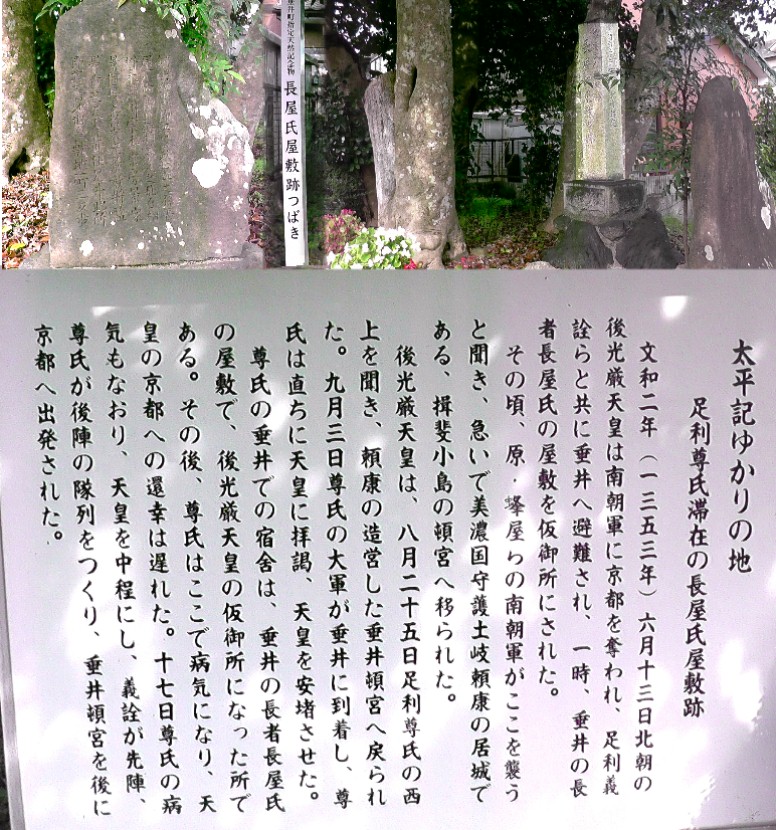 垂井町指定天然記念物 長屋氏屋敷跡つばき
太平記ゆかりの地
足利尊氏滞在の長屋氏屋敷跡
文和二年（一三五三年）六月十三日北朝の
後光厳天皇は南朝軍に京都を奪われ、足利義
詮らと共に垂井へ避難され、一時、垂井の長
者長屋氏の屋敷を仮御所にされた。
その頃、原・蜂屋らの南朝軍がここを襲う
と聞き、急いで美濃国守護土岐頼康の居城で
ある、揖斐小島の頓宮へ移られた。
後光厳天皇は、八月二十五日足利尊氏の西
上を聞き、頼康の造営した垂井頓宮へ戻られ
た。九月三日尊氏の大軍が垂井に到着し、尊
氏は直ちに天皇に拝謁、天皇を安堵させた。
尊氏の垂井での宿舎は、垂井の長者長屋氏
の屋敷で、後光厳天皇の仮御所になった所で
ある。その後、尊氏はここで病気になり、天
皇の京都への還幸は遅れた。十七日尊氏の病
気もなおり、天皇を中程にし、義詮が先陣、
尊氏が後陣の隊列をつくり、垂井頓宮を後に
京都へ出発された。